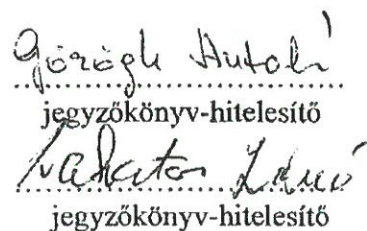 Görögh Antal
jegyzőkönyv-hitelesítő
jegyzőkönyv-hitelesítő